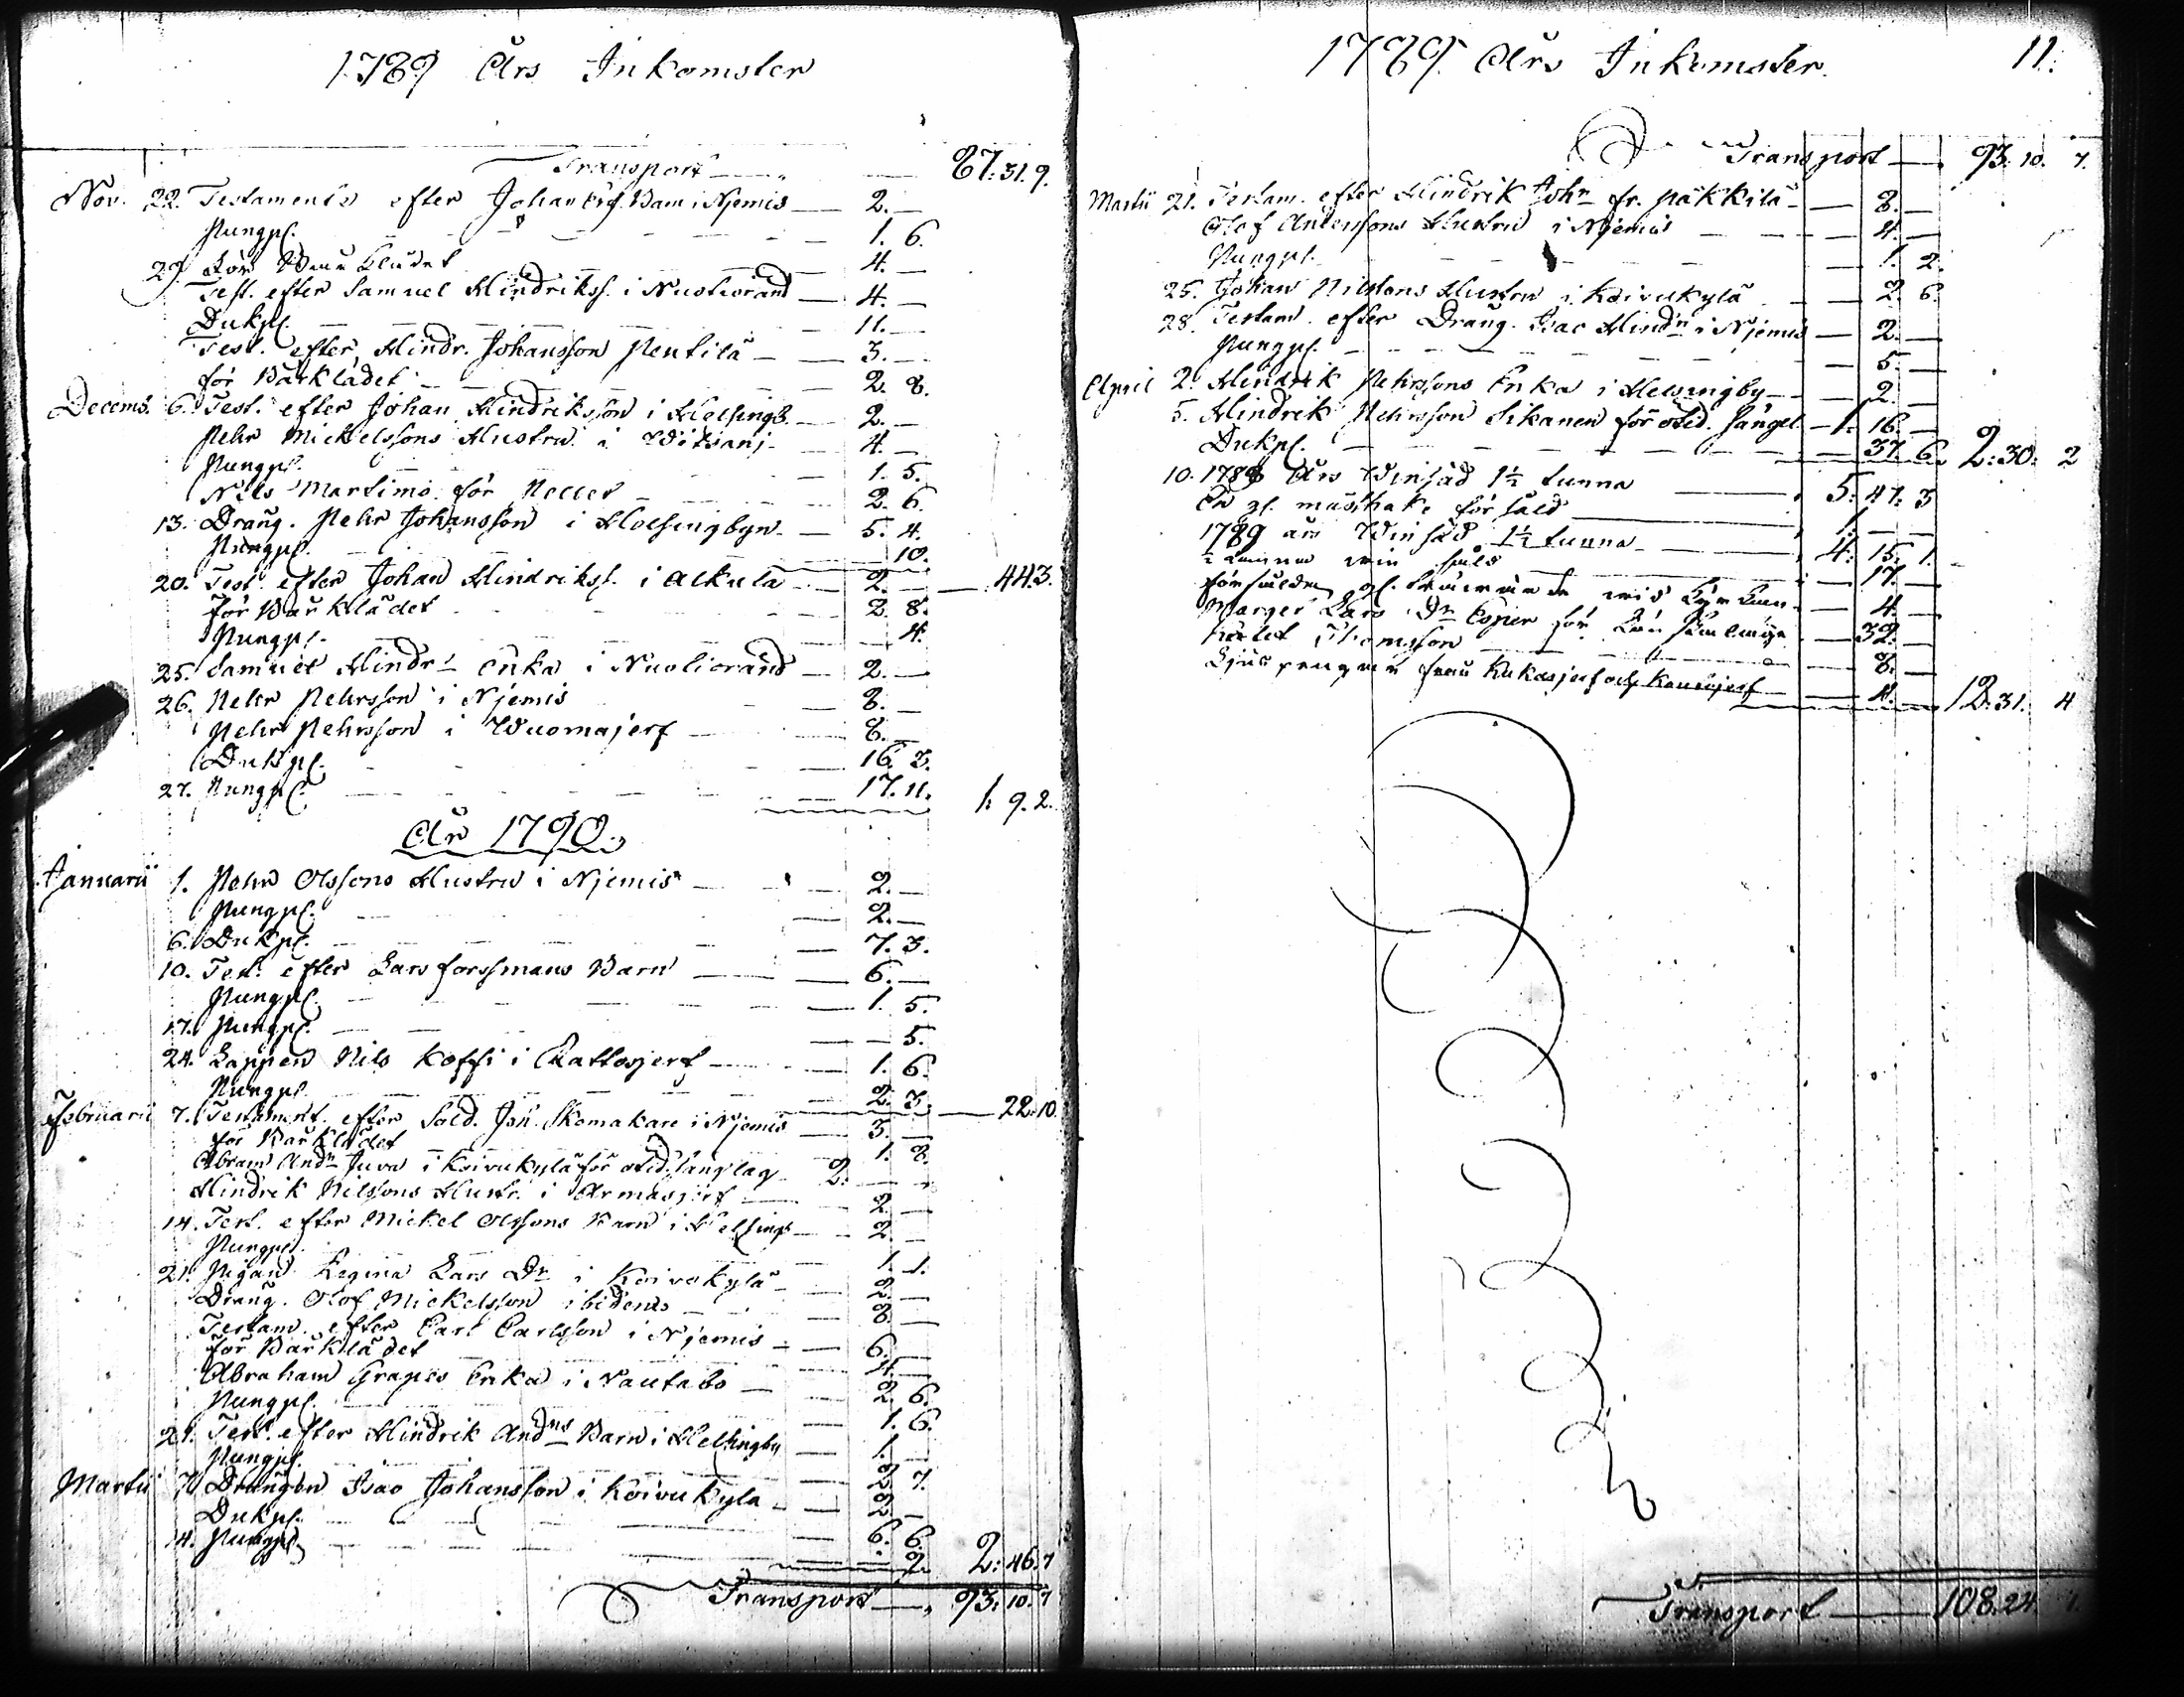 1789 Års Inkomster
Transport 87. 31. 9.
Nov. 22. Testamente efter Johan Barn i Njemis 2. —
Pungp. 1. 6.
29. För Klädet 4. —
Test. efter Samuel Hindrikss. i Nuoliorand 4. —
Dukp. 11. —
Test. efter Hindr. Johansson Pentilä 3. —
för Bårklädet 2. 8.
Decemb. 6. Test. efter Johan Hindriksson i Helsingb. 2. —
Pehr Mickelssons Hustru i Witsanj 4. —
Pungp. 1. 5.
Nils Martimo för 2. 6.
13. Dräng. Pehr Johansson i Helsingbyn 5. 4.
Pungp. 10.
20. Test. efter Johan Hindrikss. i Alkula 2. — 44. 3.
för Bårklädet 2. 8.
Pungp. 4.
25. Samuel Hindrs Enka i Nuoliorand 2. —
26. Pehr Pehrsson i Njemis 8. —
Pehr Pehrsson i Wuomajerf 8. —
Dukp. 16. 3.
27. Pungp. 17. 11. 1. 9. 2.
År 1790.
Januarii 1. Pehr Olssons Hustru i Njemis 2. —
Pungp. 2. —
6. Dukp. 7. 3.
10. Test. efter Lars Forssmans Barn 6. —
Pungp. 1. 5.
17. Pungp. 5.
24. Lappen Nils Koffi i Rattosjerf 1. 6.
Pungp. 2. 3. 22. 10.
Februarii 7. Testament. efter Sold. Joh. Skomakare i Njemis 3. —
för Bårklädet 1. 8.
Abram Andn Juva i Koivukylä för otid. sänglag 2. —
Hindrik Nilssons Hustr. i Armasjerf 2. —
14. Test. efter Mickel Olssons Barn i Helsingb 2. —
Pungp. 1. 1.
21. Pigan Regina Lars Dr i Koivukylä 2. —
Dräng. Olof Mickelsson ibidem 8. —
Testam. efter Carl Carlsson i Njemis 6. —
för Bårklädet 4. —
Abraham Grapes Enka i Nautabo 2. 6.
Pungp. 1. 6.
Test. efter Hindrik Andns Barn i Helsingby 1. —
Pungp. 2. 7.
Martii 7. Drängen Isac Johansson i Koivukylä 2. —
Dukp. 6. 6.
14. Pungp. 2. 2. 46. 7
Transport 93. 10. 7
1789. Års Inkomster. 11.
Transport 93. 10. 7.
Martii 21. Testam. efter Hindrik John fr. Päkkilä 8. —
Olof Anderssons Hustru i Njemis 4. —
Pungp. 1. 2.
25. Johan Nilssons Hustru i Koivukylä 2. 6.
28. Testam. efter Dräng. Isac Hindn i Njemis 2. —
Pungp. 5. —
April 2. Hindrik Pehrssons Enka i Helsingby 2. —
5. Hindrik Pehrsson Sikanen för otid. sängel. 1. 16. —
Dukp. 37. 6. 2. 30. 2
10. 1788 Års Winsäd 1½ tunna 5. 47. 3
En gl. mässhake försåld 1. —
1789 års Winsäd 1½ tunna 4. 15. 1.
½ kanna win såld 17. —
försålda gl. wid Kyrkan 4. —
Marget Lars Dr för 32. —
Thomsson 8. —
Ljuspengar från Kukasjerf och 4. — 12. 31. 4
Transport 108. 24. 1.